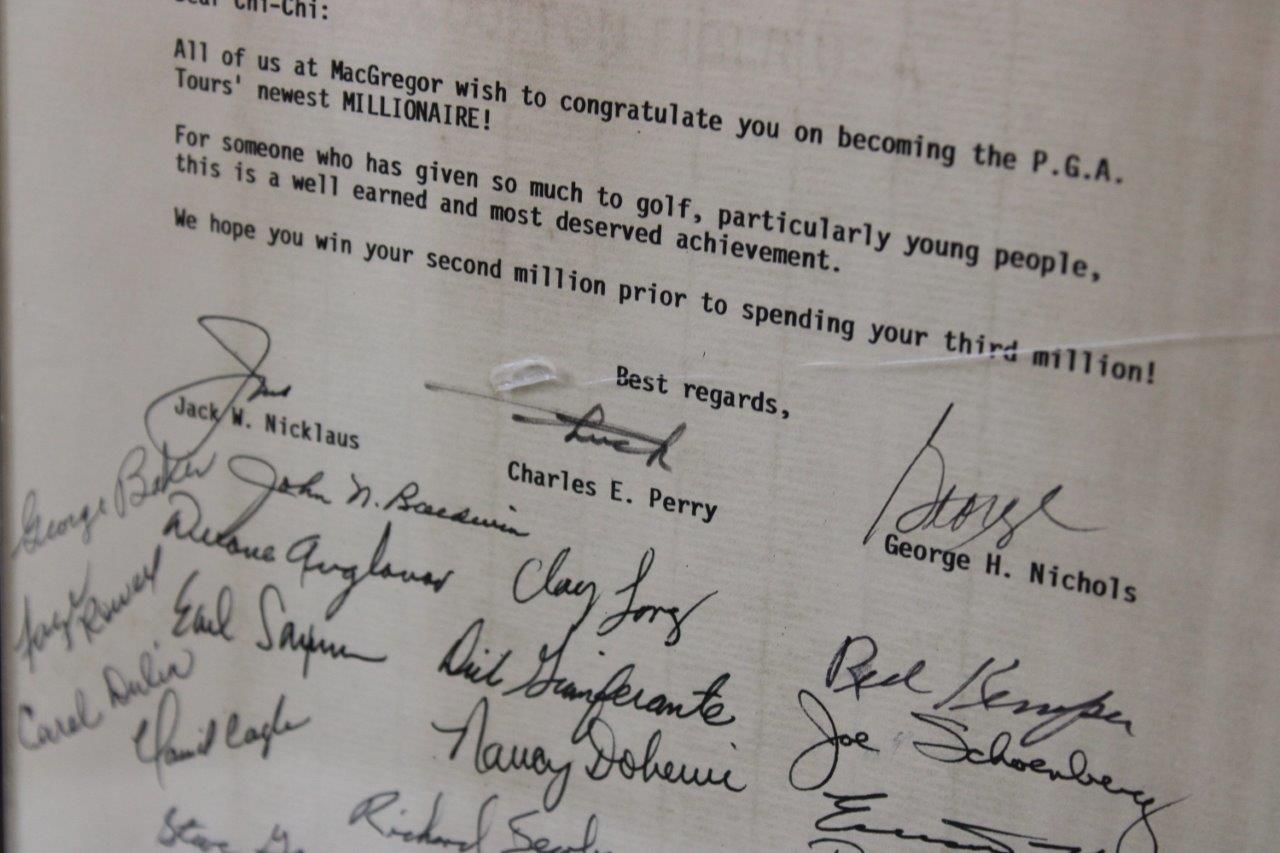 Dear Chi-Chi:
All of us at MacGregor wish to congratulate you on becoming the P.G.A.
Tours' newest MILLIONAIRE!
For someone who has given so much to golf, particularly young people,
this is a well earned and most deserved achievement.
We hope you win your second million prior to spending your third million!
Best regards,
Jack
Jack W. Nicklaus
Chuck
Charles E. Perry
George
George H. Nichols
George Baker
John N. Baldwin
Clay Long
Earl
Carol Dulin
David Cagle
Dick Gianferante
Nancy
Kemper
Joe Schoenberg
Steve
Richard